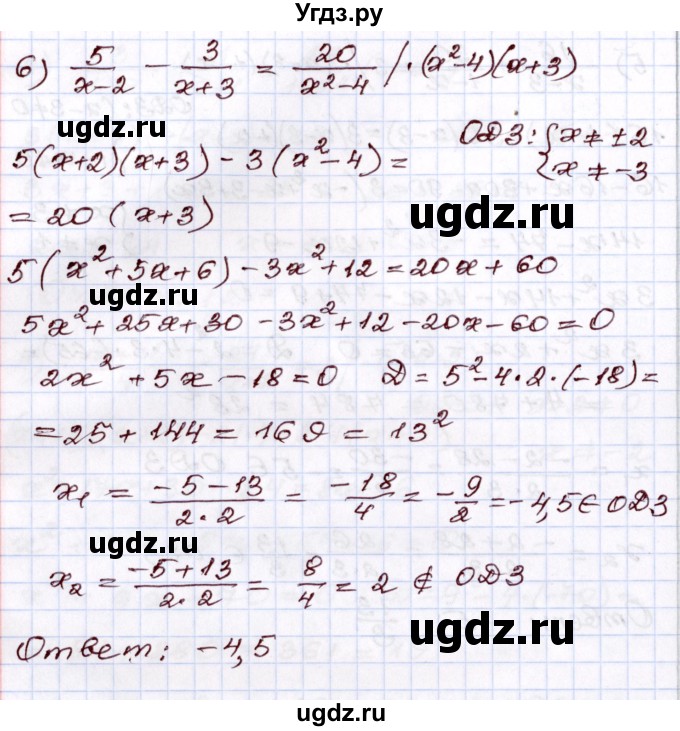 Угдз.ру
6) 5/(x-2) - 3/(x+3) = 20/(x²-4) /·(x²-4)(x+3)
ugdz.ru
5(x+2)(x+3) - 3(x²-4) = ОДЗ: {x ≠ ±2
{x ≠ -3
= 20(x+3)
ugdz.ru
5(x²+5x+6) - 3x²+12 = 20x+60
ugdz.ru
5x²+25x+30-3x²+12-20x-60=0
2x²+5x-18=0 D = 5²-4·2·(-18) =
= 25+144 = 169 = 13²
x₁ = (-5-13)/(2·2) = -18/4 = -9/2 = -4,5 ∈ ОДЗ
ugdz.ru
x₂ = (-5+13)/(2·2) = 8/4 = 2 ∉ ОДЗ
ugdz.ru
Ответ: -4,5
ugdz.ru